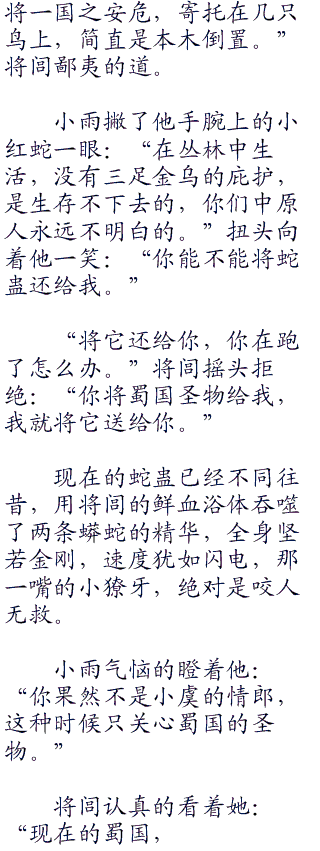 将一国之安危，寄托在几只
鸟上，简直是本木倒置。”
将闾鄙夷的道。
小雨撇了他手腕上的小
红蛇一眼：“在丛林中生
活，没有三足金乌的庇护，
是生存不下去的，你们中原
人永远不明白的。”扭头向
着他一笑：“你能不能将蛇
蛊还给我。”
“将它还给你，你在跑
了怎么办。”将闾摇头拒
绝：“你将蜀国圣物给我，
我就将它送给你。”
现在的蛇蛊已经不同往
昔，用将闾的鲜血浴体吞噬
了两条蟒蛇的精华，全身坚
若金刚，速度犹如闪电，那
一嘴的小獠牙，绝对是咬人
无救。
小雨气恼的瞪着他：
“你果然不是小虞的情郎，
这种时候只关心蜀国的圣
物。”
将闾认真的看着她：
“现在的蜀国，